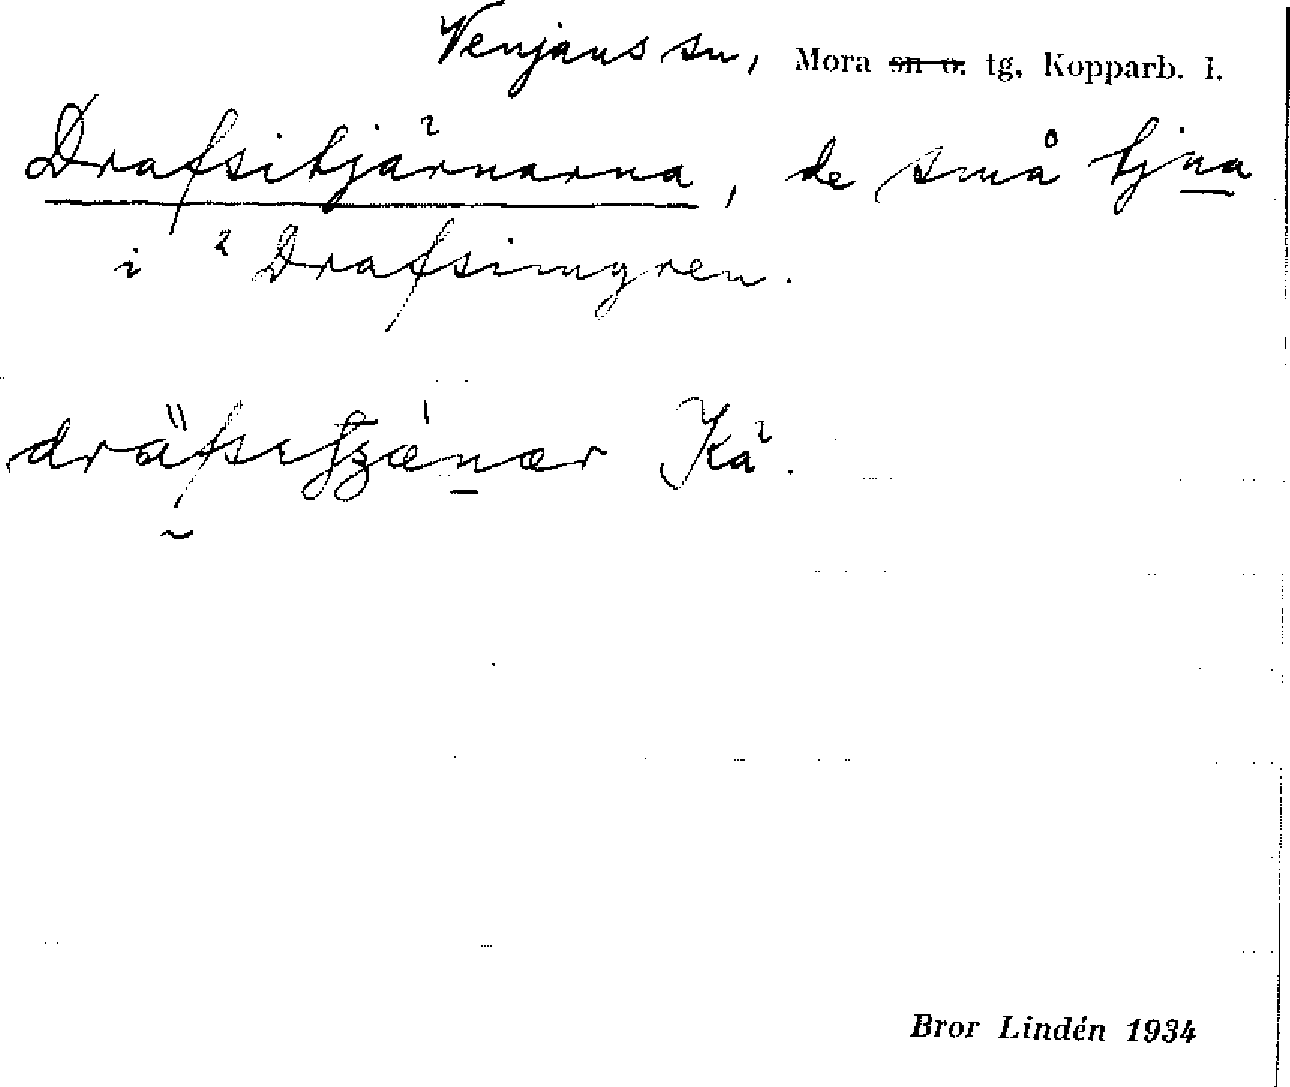 Venjans sn, Mora sn o. tg, Kopparb. l.
Drafsitjärnarna, de små tjna
i Drafsimyren.
Kä.
Bror Lindén 1934